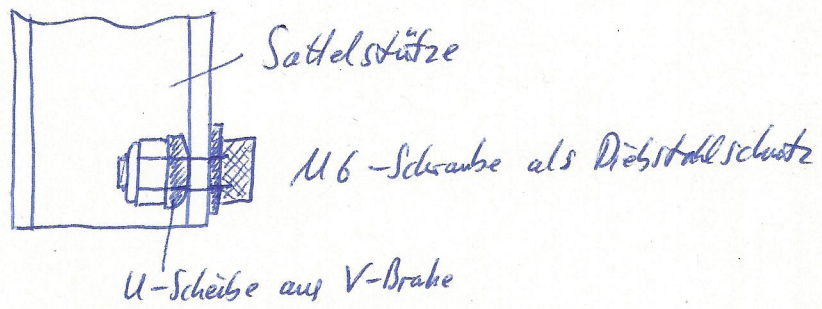 Sattelstütze
M6-Schraube als Diebstahlschutz
U-Scheibe aus V-Brake